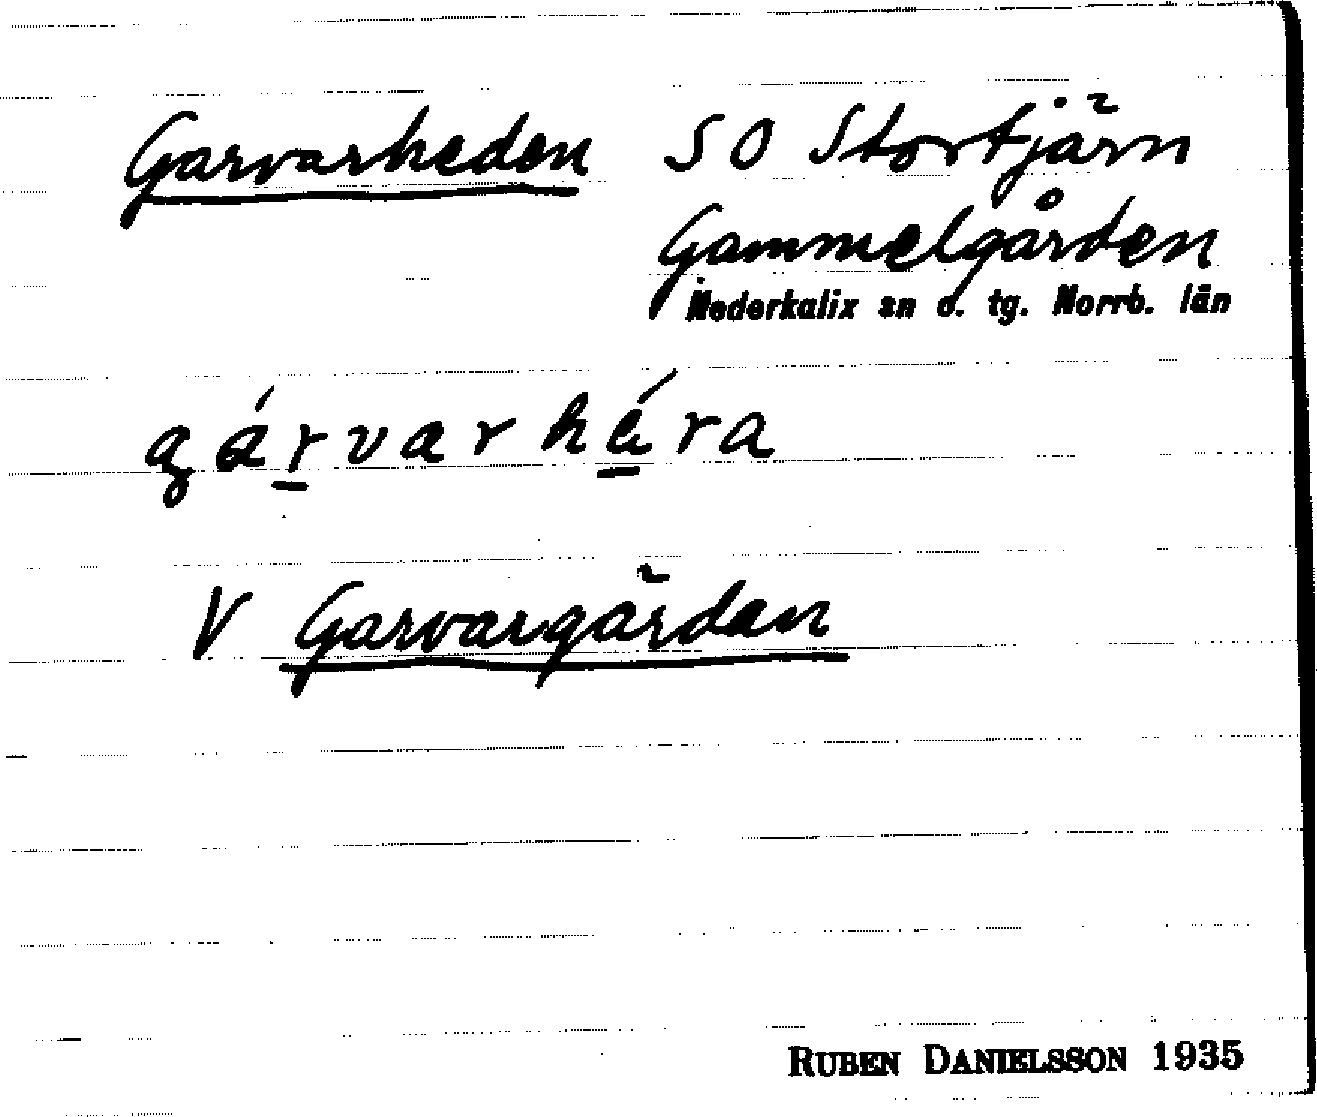 Garvarheden SO Stortjärn
Gammelgården
Nederkalix sn o. tg. Norrb. län
gárvarhéra
V Garvargärdan
RUBEN DANIELSSON 1935